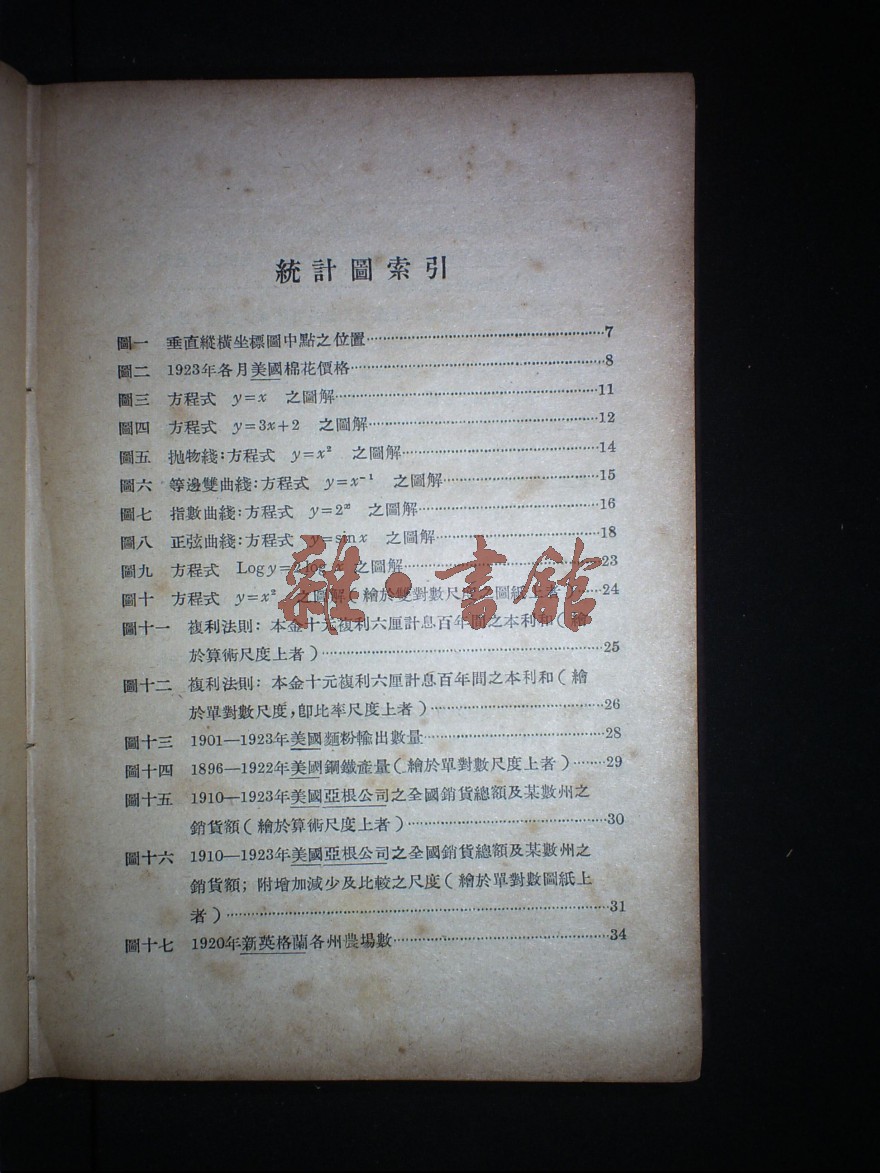 統計圖索引
圖一 垂直縱橫坐標圖中點之位置……7
圖二 1923年各月美國棉花價格……8
圖三 方程式 y=x 之圖解……11
圖四 方程式 y=3x+2 之圖解……12
圖五 拋物綫:方程式 y=x² 之圖解……14
圖六 等邊雙曲綫:方程式 y=x⁻¹ 之圖解……15
圖七 指數曲綫:方程式 y=2ˣ 之圖解……16
圖八 正弦曲綫:方程式 y=sinx 之圖解……18
圖九 方程式 Logy=2logx 之圖解……23
圖十 方程式 y=x² 之圖解(繪於雙對數尺度之圖紙上者)……24
圖十一 複利法則: 本金十元複利六厘計息百年間之本利和(繪
於算術尺度上者)……25
圖十二 複利法則: 本金十元複利六厘計息百年間之本利和(繪
於單對數尺度,卽比率尺度上者)……26
圖十三 1901—1923年美國麵粉輸出數量……28
圖十四 1896—1922年美國鋼鐵產量(繪於單對數尺度上者)……29
圖十五 1910—1923年美國亞根公司之全國銷貨總額及某數州之
銷貨額(繪於算術尺度上者)……30
圖十六 1910—1923年美國亞根公司之全國銷貨總額及某數州之
銷貨額; 附增加減少及比較之尺度(繪於單對數圖紙上
者)……31
圖十七 1920年新英格蘭各州農場數……34
雜·書館